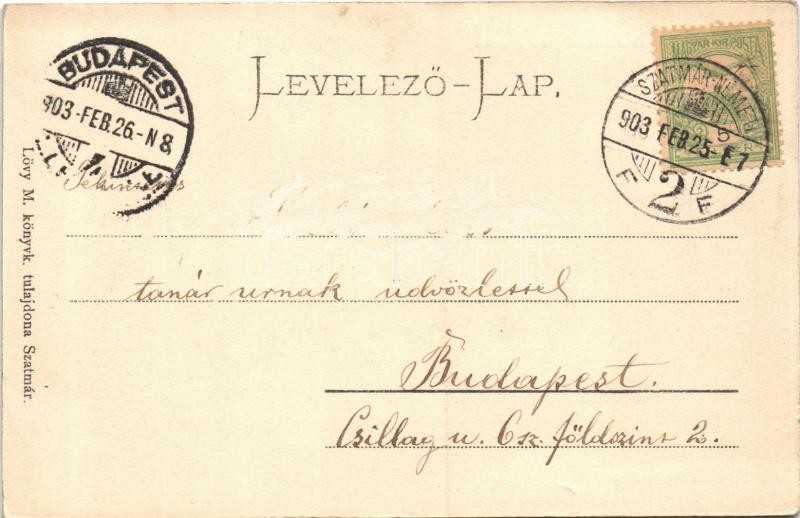 LEVELEZŐ-LAP.
MAGYAR KIR. POSTA
BUDAPEST
903-FEB.26.-N8
SZATMÁR-NÉMETI
5
903 FEB.25-E7
F 2 F
Tekintetes
tanár urnak üdvözlettel
Budapest.
Csillag u. 6sz. földszint 2.
Lövy M. könyvk. tulajdona Szatmár.